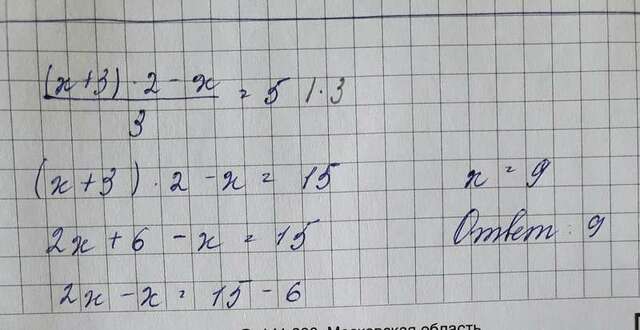 (x+3)·2-x
3
= 5 |·3
(x+3)·2-x = 15
2x+6-x = 15
2x-x = 15-6
x = 9
Ответ: 9
Московская область